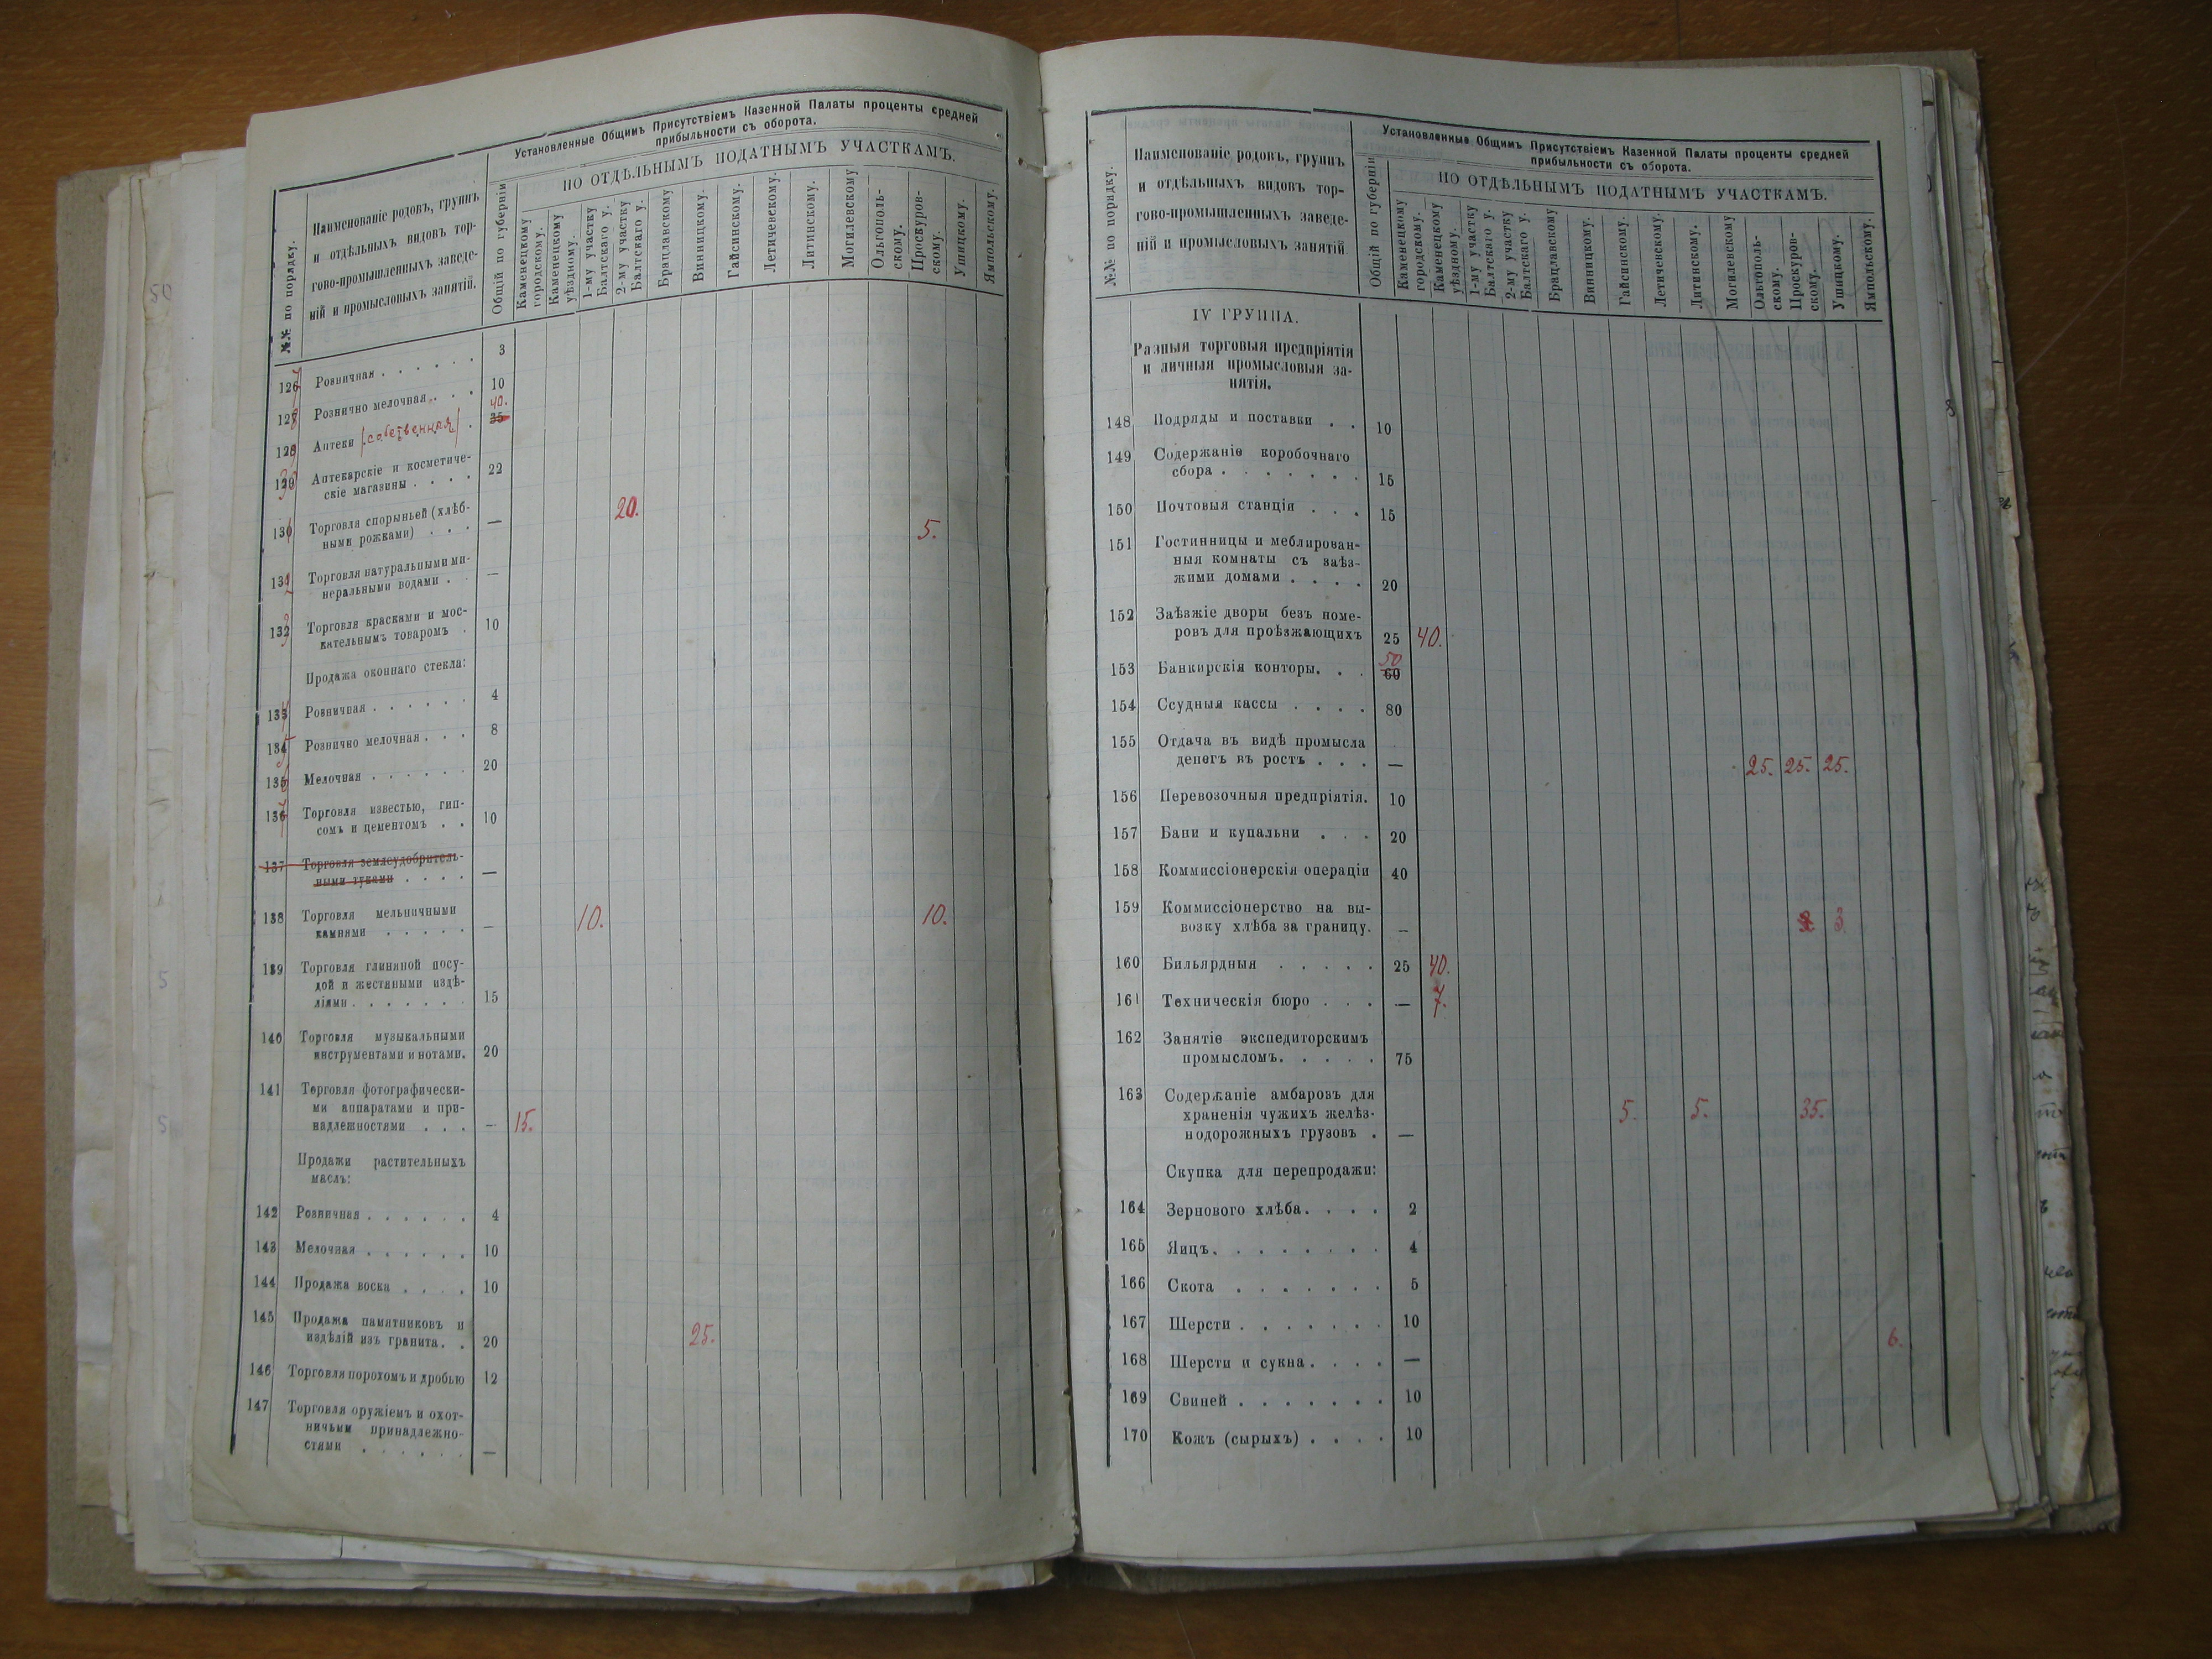 Установленные Общимъ Присутствіемъ Казенной Палаты проценты средней
прибыльности съ оборота.
ПО ОТДѢЛЬНЫМЪ ПОДАТНЫМЪ УЧАСТКАМЪ.
№№ по порядку.
Наименованіе родовъ, группъ
и отдѣльныхъ видовъ тор-
гово-промышленныхъ заведе-
ній и промысловыхъ занятій.
Общій по губерніи
Каменецкому
городскому.
Каменецкому
уѣздному.
1-му участку
Балтскаго у.
2-му участку
Балтскаго у.
Брацлавскому
Винницкому.
Гайсинскому.
Летичевскому.
Литинскому.
Могилевскому
Ольгополь-
скому.
Проскуров-
скому.
Ушицкому.
Ямпольскому.
126 Розничная . . . . . . 3
127 Рознично мелочная . . . 10
40.
128 Аптеки (собственная) . 35
129 Аптекарскіе и косметиче-
скіе магазины . . . . 22
130 Торговля спорыньей (хлѣб-
ными рожками) . . . — 20. 5.
131 Торговля натуральными ми-
неральными водами . . —
132 Торговля красками и мос-
кательнымъ товаромъ . 10
Продажа оконнаго стекла:
133 Розничная . . . . . . 4
134 Рознично мелочная . . . 8
135 Мелочная . . . . . . 20
136 Торговля известью, гип-
сомъ и цементомъ . . 10
137 Торговля землеудобритель-
ными туками . . . . —
138 Торговля мельничными
камнями . . . . . — 10. 10.
139 Торговля глиняной посу-
дой и жестяными издѣ-
ліями . . . . . . . 15
140 Торговля музыкальными
инструментами и нотами. 20
141 Торговля фотографически-
ми аппаратами и при-
надлежностями . . . — 15.
Продажи растительныхъ
маслъ:
142 Розничная . . . . . . 4
143 Мелочная . . . . . . 10
144 Продажа воска . . . . 10
145 Продажа памятниковъ и
издѣлій изъ гранита. . 20 25.
146 Торговля порохомъ и дробью 12
147 Торговля оружіемъ и охот-
ничьими принадлежно-
стями . . . . . . —
Установленные Общимъ Присутствіемъ Казенной Палаты проценты средней
прибыльности съ оборота.
ПО ОТДѢЛЬНЫМЪ ПОДАТНЫМЪ УЧАСТКАМЪ.
№№ по порядку.
Наименованіе родовъ, группъ
и отдѣльныхъ видовъ тор-
гово-промышленныхъ заведе-
ній и промысловыхъ занятій
Общій по губерніи
Каменецкому
городскому.
Каменецкому
уѣздному.
1-му участку
Балтскаго у.
2-му участку
Балтскаго у.
Брацлавскому
Винницкому.
Гайсинскому.
Летичевскому.
Литинскому.
Могилевскому
Ольгополь-
скому.
Проскуров-
скому.
Ушицкому.
Ямпольскому.
IV ГРУППА.
Разныя торговыя предпріятія
и личныя промысловыя за-
нятія.
148 Подряды и поставки . . 10
149 Содержаніе коробочнаго
сбора . . . . . . . 15
150 Почтовыя станціи . . . 15
151 Гостинницы и меблирован-
ныя комнаты съ заѣз-
жими домами . . . . 20
152 Заѣзжіе дворы безъ номе-
ровъ для проѣзжающихъ 25 40.
50
153 Банкирскія конторы. . . 60
154 Ссудныя кассы . . . . 80
155 Отдача въ видѣ промысла
денегъ въ ростъ . . . — 25. 25. 25.
156 Перевозочныя предпріятія. 10
157 Бани и купальни . . . 20
158 Коммиссіонерскія операціи 40
159 Коммиссіонерство на вы-
возку хлѣба за границу. — 3.
160 Бильярдныя . . . . . 25 40.
161 Техническія бюро . . . — 7.
162 Занятіе экспедиторскимъ
промысломъ. . . . . 75
163 Содержаніе амбаровъ для
храненія чужихъ желѣз-
нодорожныхъ грузовъ . — 5. 5. 35.
Скупка для перепродажи:
164 Зернового хлѣба. . . . 2
165 Яицъ. . . . . . . . 4
166 Скота . . . . . . . 5
167 Шерсти . . . . . . . 10
168 Шерсти и сукна . . . . — 6.
169 Свиней . . . . . . . 10
170 Кожъ (сырыхъ) . . . . 10